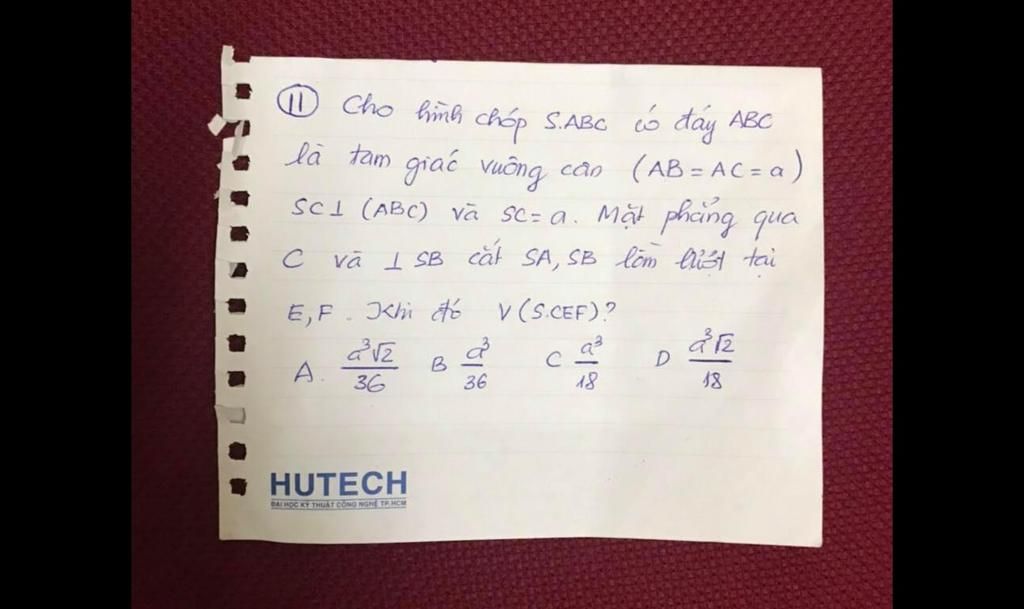 11 Cho hình chóp S.ABC có đáy ABC
là tam giác vuông cân (AB = AC = a)
SC⊥ (ABC) và SC = a. Mặt phẳng qua
C và ⊥ SB cắt SA, SB lần lượt tại
E, F. Khi đó V(S.CEF)?
A. a³√2/36 B a³/36 C a³/18 D a³√2/18
HUTECH
ĐẠI HỌC KỸ THUẬT CÔNG NGHỆ TP.HCM